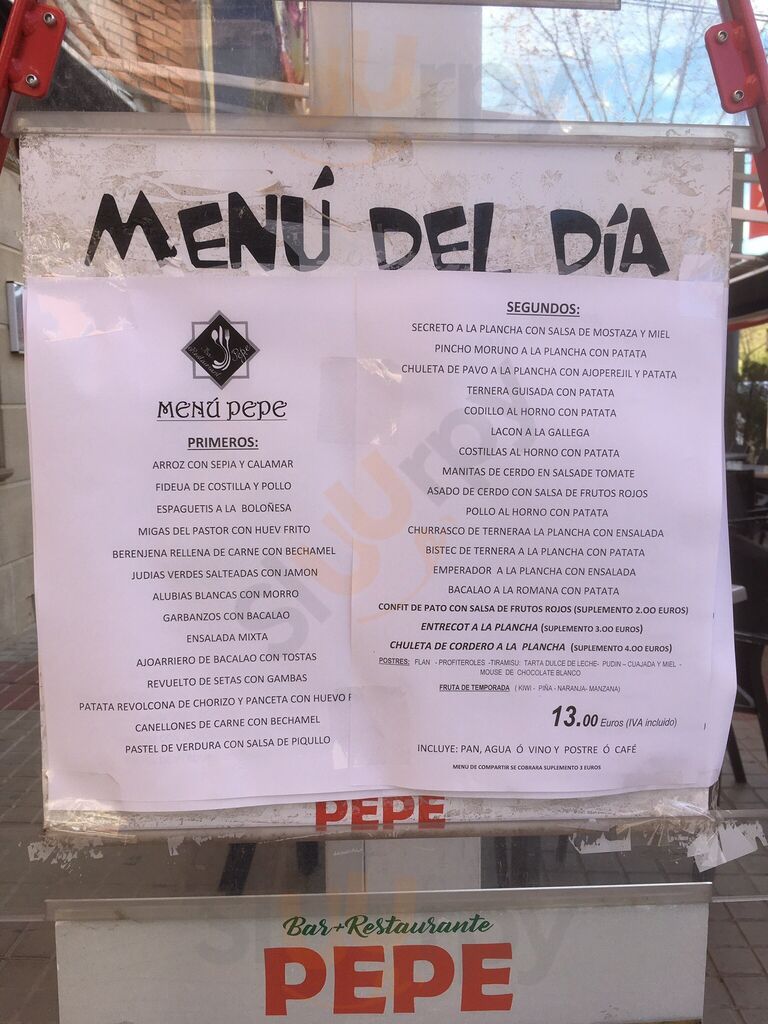 MENÚ DEL DÍA
Bar
Restaurante
Pepe
MENÚ PEPE
PRIMEROS:
ARROZ CON SEPIA Y CALAMAR
FIDEUA DE COSTILLA Y POLLO
ESPAGUETIS A LA BOLOÑESA
MIGAS DEL PASTOR CON HUEV FRITO
BERENJENA RELLENA DE CARNE CON BECHAMEL
JUDIAS VERDES SALTEADAS CON JAMON
ALUBIAS BLANCAS CON MORRO
GARBANZOS CON BACALAO
ENSALADA MIXTA
AJOARRIERO DE BACALAO CON TOSTAS
REVUELTO DE SETAS CON GAMBAS
PATATA REVOLCONA DE CHORIZO Y PANCETA CON HUEVO F
CANELLONES DE CARNE CON BECHAMEL
PASTEL DE VERDURA CON SALSA DE PIQULLO
SEGUNDOS:
SECRETO A LA PLANCHA CON SALSA DE MOSTAZA Y MIEL
PINCHO MORUNO A LA PLANCHA CON PATATA
CHULETA DE PAVO A LA PLANCHA CON AJOPEREJIL Y PATATA
TERNERA GUISADA CON PATATA
CODILLO AL HORNO CON PATATA
LACON A LA GALLEGA
COSTILLAS AL HORNO CON PATATA
MANITAS DE CERDO EN SALSADE TOMATE
ASADO DE CERDO CON SALSA DE FRUTOS ROJOS
POLLO AL HORNO CON PATATA
CHURRASCO DE TERNERAA LA PLANCHA CON ENSALADA
BISTEC DE TERNERA A LA PLANCHA CON PATATA
EMPERADOR A LA PLANCHA CON ENSALADA
BACALAO A LA ROMANA CON PATATA
CONFIT DE PATO CON SALSA DE FRUTOS ROJOS (SUPLEMENTO 2.OO EUROS)
ENTRECOT A LA PLANCHA (SUPLEMENTO 3.OO EUROS)
CHULETA DE CORDERO A LA PLANCHA (SUPLEMENTO 4.OO EUROS)
POSTRES: FLAN - PROFITEROLES -TIRAMISU: TARTA DULCE DE LECHE- PUDIN – CUAJADA Y MIEL -
MOUSE DE CHOCOLATE BLANCO
FRUTA DE TEMPORADA ( KIWI - PIÑA - NARANJA- MANZANA)
13.00 Euros (IVA incluido)
INCLUYE: PAN, AGUA Ó VINO Y POSTRE Ó CAFÉ
MENU DE COMPARTIR SE COBRARA SUPLEMENTO 3 EUROS
PEPE
Bar+Restaurante
PEPE
sluurpy